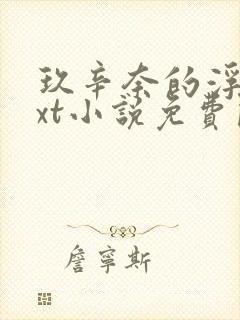 玖辛奈的浮
xt小說免費
詹寧斯